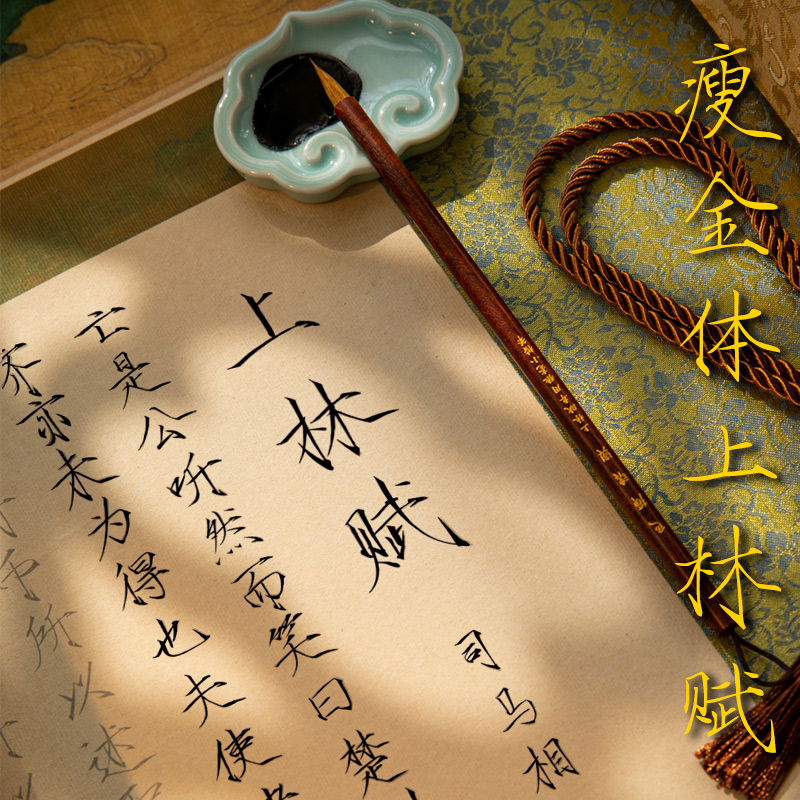 瘦金体上林赋
上林赋
司马相
亡是公听然而笑曰楚
齐亦未为得也夫使
币所以述